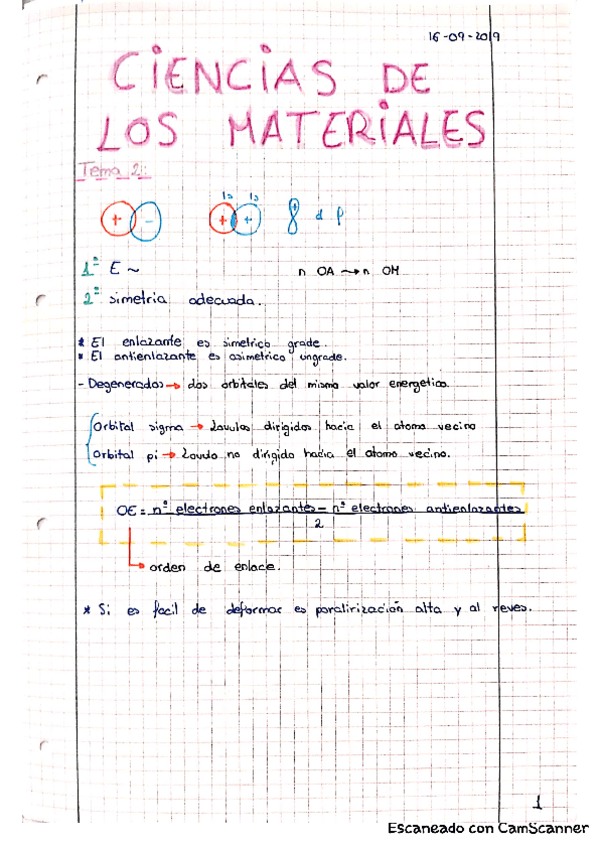 16-09-2019
CIENCIAS DE
LOS MATERIALES
Tema 2:
1s 1s
+ - + + + d p
1º E ~ n OA → n OM
2º simetria adecuada.
* El enlazante es simetrico grade.
* El antienlazante es asimetrico ungrade.
- Degenerados → dos orbitales del mismo valor energetico.
Orbital sigma → Lovulos dirigidos hacia el atomo vecino
Orbital pi → Lovulo no dirigido hacia el atomo vecino.
OE = nº electrones enlazantes - nº electrones antienlazantes
2
orden de enlace.
* Si es facil de deformar es poralirización alta y al reves.
1
Escaneado con CamScanner